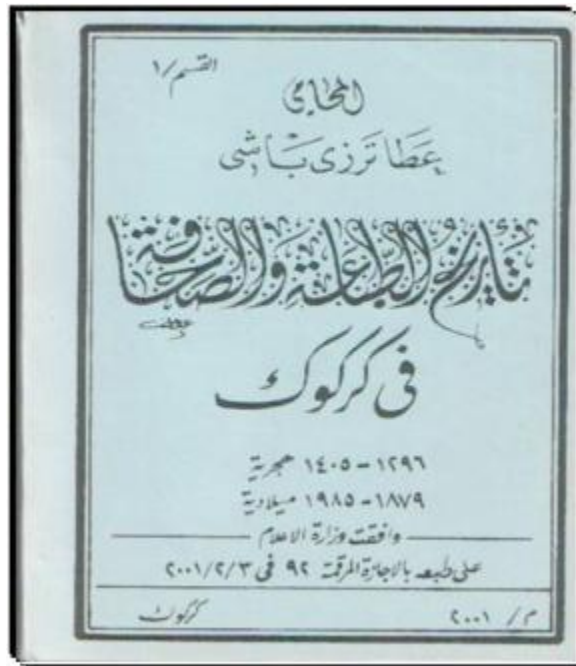 القسم/١
المحامي
عطا ترزى باشى
تأريخ الطباعة والصحافة
فى كركوك
١٢٩٦ - ١٤٠٥ هجرية
١٨٧٩ - ١٩٨٥ ميلادية
وافقت وزارة الاعلام
على طبعه بالاجازة المرقمة ٩٢ فى ٢٠٠١/٢/٣
م / ٢٠٠١ كركوك